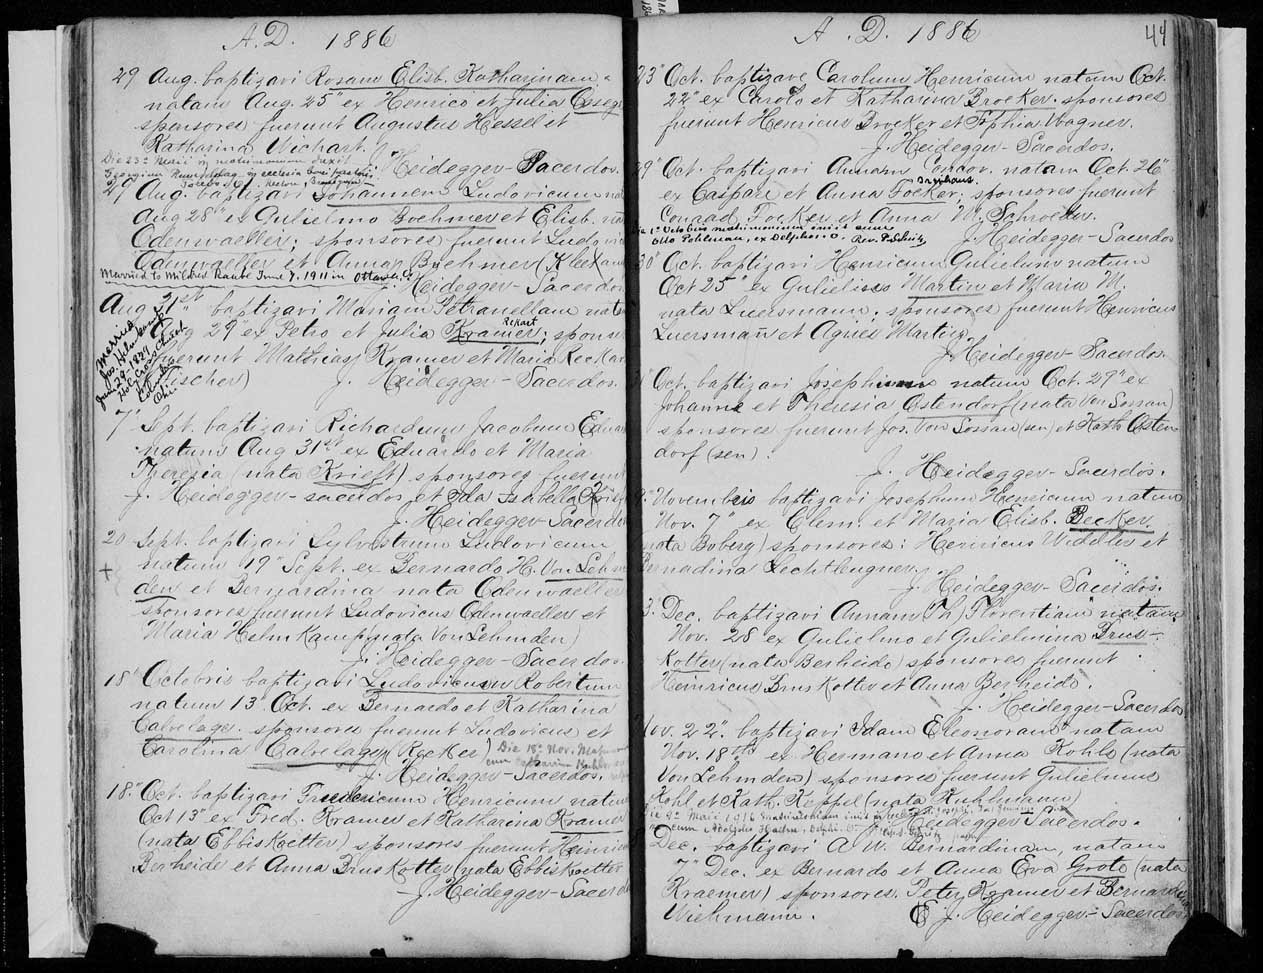 A.D. 1886
29 Aug. baptizavi Rosam Elisb. Katharinam
natam Aug. 25" ex Henrico et Julia
sponsores fuerunt Augustus Hessel et
Katharina Wichart.
J. Heidegger-Sacerdos.
29 Aug. baptizavi Johannem Ludovicum
Aug 28" ex Gulielmo Boehmer et Elisb.
Odenwaeller; sponsores fuerunt Ludovi
Odenwaeller et Anna Boehmer
Married to Mildred Raabe June 7, 1911 in Ottawa, O.
J. Heidegger-Sacerdos
Aug 31st baptizavi Mariam Petranellam natam
Aug 29 ex Petro et Julia Kramer; sponsor
Rekart
fuerunt Mathias Kramer et Maria Reckar
Fischer) J. Heidegger-Sacerdos.
Married
Jos.
June 29-1887
Holy Cross Church
Columbus
Ohio
7" Sept. baptizavi Richardum Jacobum Eduar
natum Aug 31st ex Eduardo et Maria
Theresia (nata Krieft) sponsores fuerunt
J. Heidegger-sacerdos et Ida Isabella
J. Heidegger-Sacerdo
20 Sept. baptizavi Sylvestrum Ludovicum
natum 19" Sept. ex Bernardo H. Von Lehm
den et Bernardina nata Odenwaeller
sponsores fuerunt Ludovicus Odenwaeller et
Maria Helmkamp (nata Von Lehmden)
J. Heidegger-Sacerdos.
18" Octobris baptizavi Ludovicum Robertum
natum 13 Oct. ex Bernardo et Katharina
Calvelage. sponsores fuerunt Ludovicus et
Carolina Calvelage (Recker)
Die 18a Nov.
J. Heidegger-Sacerdos.
18." Oct. baptizavi Fredericum Henricum natum
Oct 13" ex Fred. Kramer et Katharina Kramer
(nata Ebbiskoetter) sponsores fuerunt Heinric
Berheide et Anna Bruskotter (nata Ebbiskoetter
J. Heidegger-Sacerd
A.D. 1886
44
23" Oct. baptizavi Carolum Henricum natum Oct.
22" ex Carolo et Katharina Broeker. sponsores
fuerunt Henricus Broeker et Sophia Wagner.
J. Heidegger-Sacerdos.
29" Oct. baptizavi Annam natam Oct. 26"
ex Caspare et Anna Focker; sponsores fuerunt
Conrad Focker et Anna M. Schroeder.
Otto Pohlman, ex Delphos O. Rev. P. Schuitz
J. Heidegger-Sacerdos
30" Oct. baptizavi Henricum Gulielmum natum
Oct 25" ex Gulielmo Martin et Maria M.
nata Luersmann; sponsores fuerunt Henricus
Luersmann et Agnes Martin.
J. Heidegger-Sacerdos.
Oct. baptizavi Josephinum natum Oct. 29" ex
Johanne et Theresia Ostendorf (nata Von Sossan)
sponsores fuerunt Jos. Von Sossan (sen) et Kath Osten
dorf (sen).
J. Heidegger-Sacerdos.
9" Novembris baptizavi Josephum Henricum natum
Nov. 7" ex Clem. et Maria Elisb. Becker
nata Boberg) sponsores: Henricus Widdler et
Bernadina
J. Heidegger-Sacerdos.
3. Dec. baptizavi Annam Th) Florentiam natam
Nov. 28 ex Gulielmo et Gulielmina Brus-
Kotter (nata Berheide) sponsores fuerunt
Heinricus Bruskotter et Anna Berheide.
J. Heidegger-Sacerdos
Nov. 22". baptizavi Idam Eleonoram natam
Nov. 18th ex Hermano et Anna Kohls (nata
Von Lehmden) sponsores fuerunt Gulielmus
Kohl et Kath. Keppel (nata Kuhlmann)
Heidegger Sacerdos.
Dec. baptizavi A. W. Bernardinam, natam
7" Dec. ex Bernardo et Anna Eva Grote (nata
Kraemer) sponsores. Peter Kramer et Bernard
Wiehmann. J. Heidegger-Sacerdos.